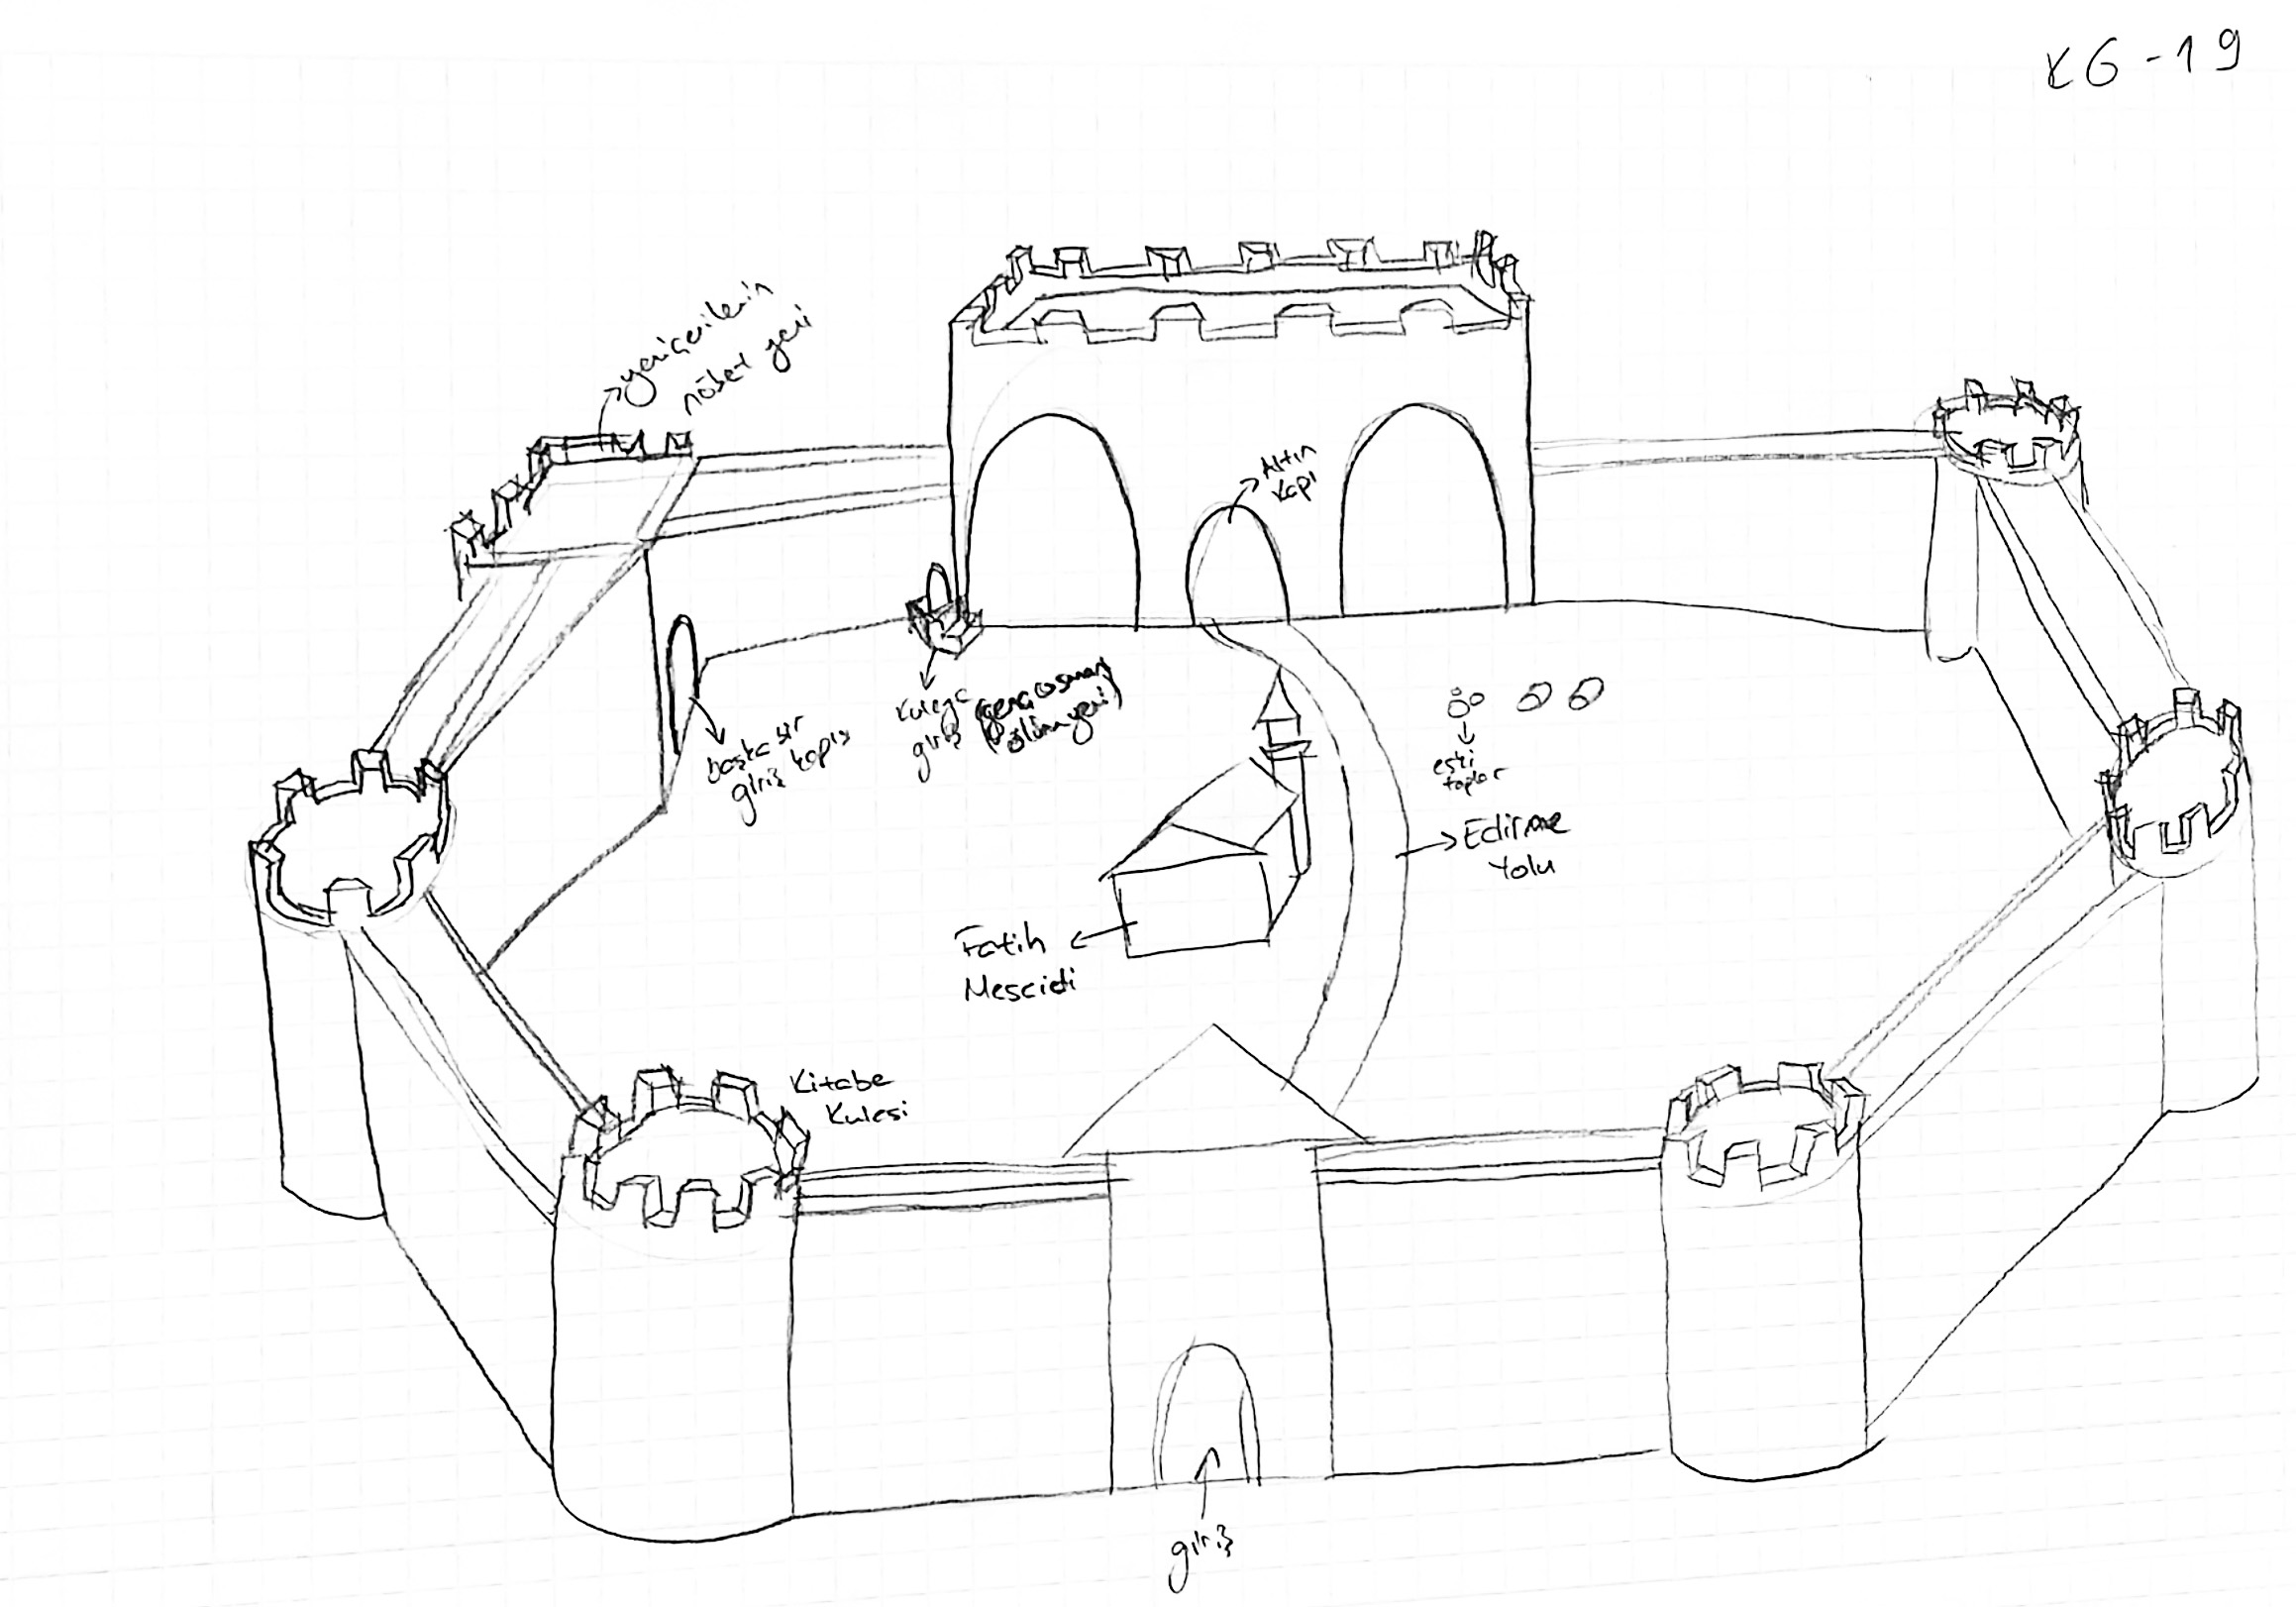 KG-19
yeniçerilerin
nöbet yeri
Altın
kapı
başka bir
giriş kapısı
kuleye
giriş
(genç osman
ölüm yeri)
eski
toplar
Edirne
Yolu
Fatih
Mescidi
Kitabe
Kulesi
giriş